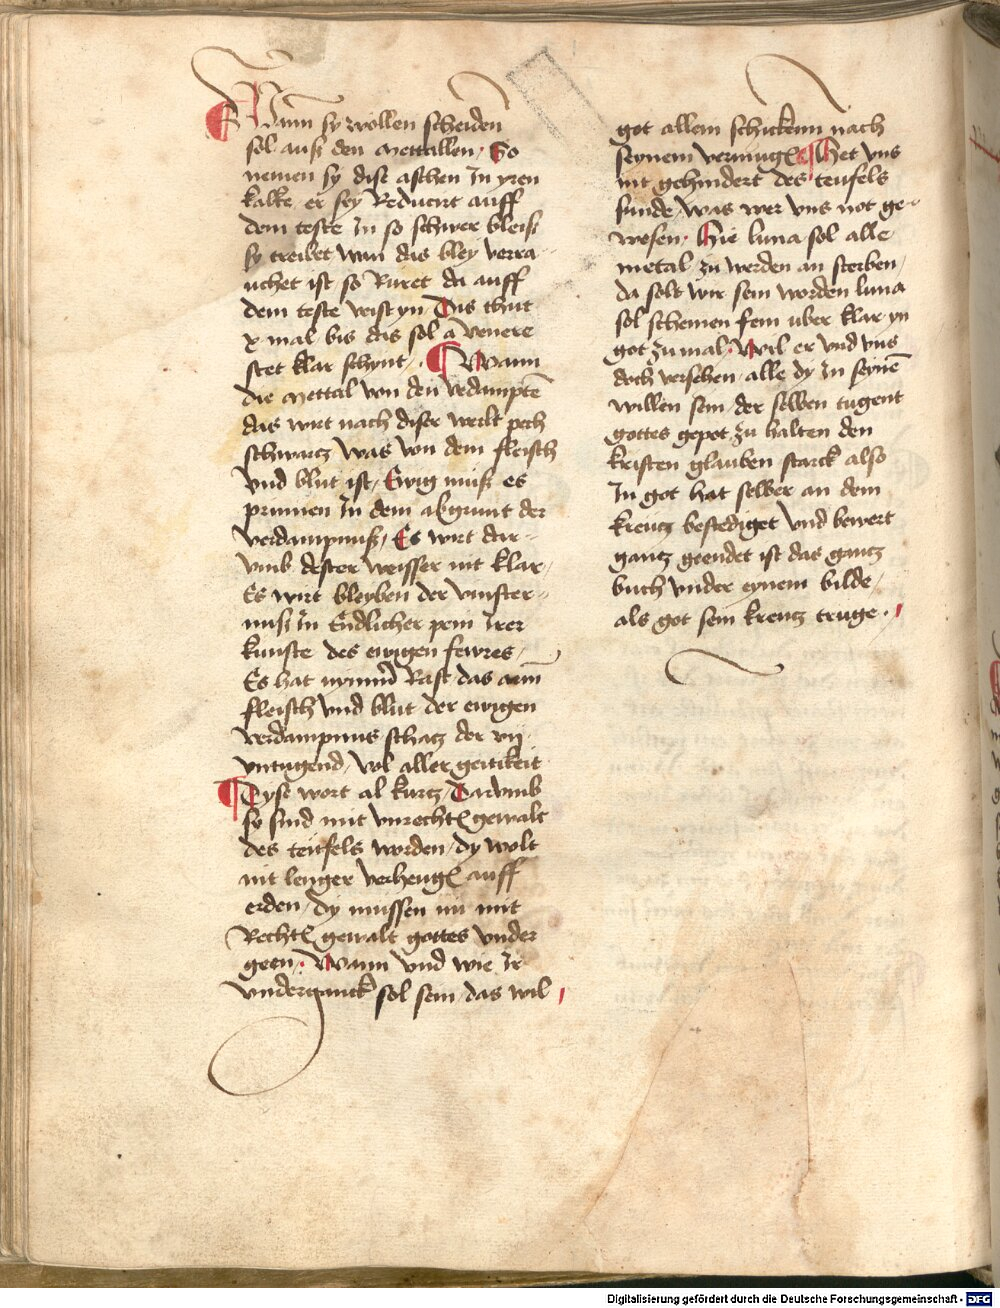 Wann sy wöllen scheiden
sol auß den mettallen. So
nemen sy dise aschen In yren
kalke, er sey Reducirt auff
dem teste In so schwer bleiß
sy treibet wan das bley verra-
uchet ist so Ruret da auff
dem teste wist yn Das thut
x mal bis das sol a venere
stet klar schynt. Wann
die mettal von den vedampte
das wirt nach diser werlt pech
schwarcz was von dem fleisch
vnd blut ist, Ewig muß es
prinnen In dem abgrunt der
verdampnuß, Es wirt dar-
vmb dester weisser nit klar,
Es wirt bleyben der vinster-
nuß In Endlicher pein Irer
kunste des ewigen fewres,
Es hat nymmer Rast das arm
fleisch vnd blut der ewigen
verdampnus schacz der vij
vntugend, vol aller geitikeit
Dyse wort al kurcz, Darvmb
sy sind mit vnrechter gewalt
des teufels worden, dy wolt
nit lenger verhengen auff
erden, dy mussen nu mit
Rechter gewalt gottes vnder
geen. Wann vnd wie Ir
vnderganck sol sein, das wil
got allein schickenn nach
seynem vermugen Het vns
nit gehindert des teufels
sunde, was wer vns not ge-
wesen. Hie luna sol alle
metal zu werden an sterben,
da solt wir sein worden luna
sol scheinen fein uber klar yn
got zumal. Wil er vnd vns
doch versehen, alle dy In seyne
willen sein, der selben tugent
gottes gepot zu halten den
kristen glauben starck also
In got hat selber an dem
kreucz bestediget vnd bewert
gancz geendet ist das gancz
buch vnder eynem bilde,
als got sein kreucz truge.
Digitalisierung gefördert durch die Deutsche Forschungsgemeinschaft - DFG